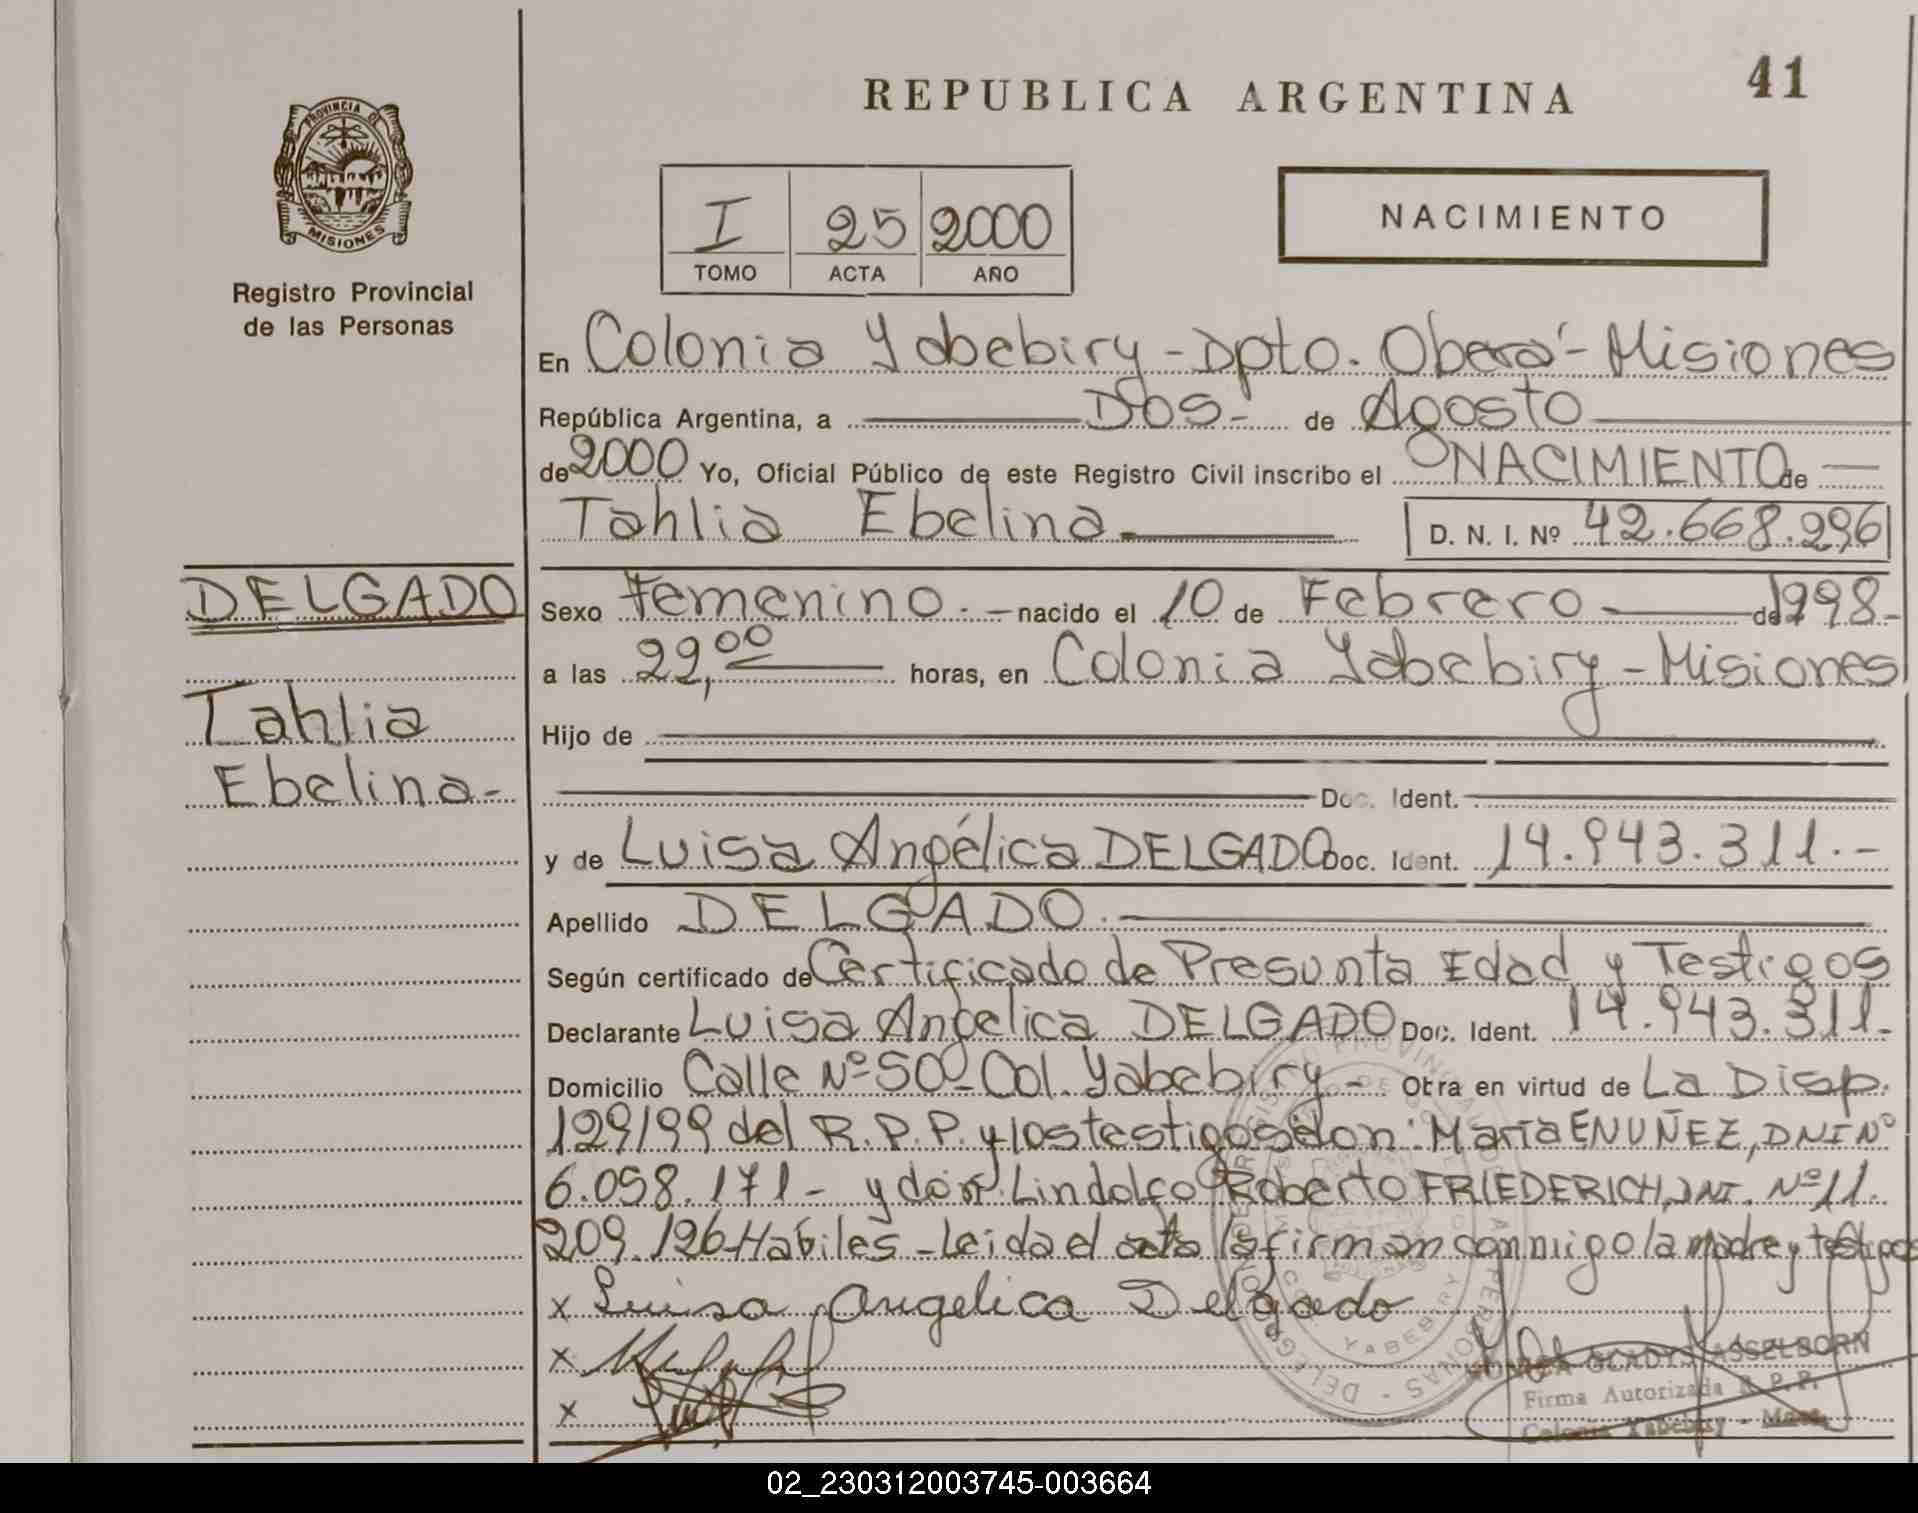 41
REPUBLICA ARGENTINA
PROVINCIA DE
MISIONES
Registro Provincial
de las Personas
I 25 2000
TOMO ACTA AÑO
NACIMIENTO
En Colonia Yabebiry - Dpto. Oberá - Misiones
República Argentina, a Dos - de Agosto
de 2000 Yo, Oficial Público de este Registro Civil inscribo el NACIMIENTO de
Tahlia Ebelina D. N. I. Nº 42.668.296
DELGADO
Tahlia
Ebelina -
Sexo Femenino. - nacido el 10 de Febrero de 1998 -
a las 22,00 horas, en Colonia Yabebiry - Misiones
Hijo de
Doc. Ident.
y de Luisa Angélica DELGADO Doc. Ident. 14.943.311. -
Apellido DELGADO. -
Según certificado de Certificado de Presunta Edad y Testigos
Declarante Luisa Angelica DELGADO Doc. Ident. 14.943.311. -
Domicilio Calle Nº 50 - Col. Yabebiry - Otra en virtud de La Disp.
129/99 del R.P.P. y los testigos don: María E NUÑEZ, DNI Nº
6.058.171 - y don Lindolfo Roberto FRIEDERICH, DNI. Nº 11.
209.126 Habiles - Leida el acta la firman conmigo la madre y testigos
x Luisa Angelica Delgado
x
x
MONICA GLADYS ASSELBORN
Firma Autorizada R.P.P.
Colonia Yabebiry - Mnes.
YABEBIRY
02_230312003745-003664